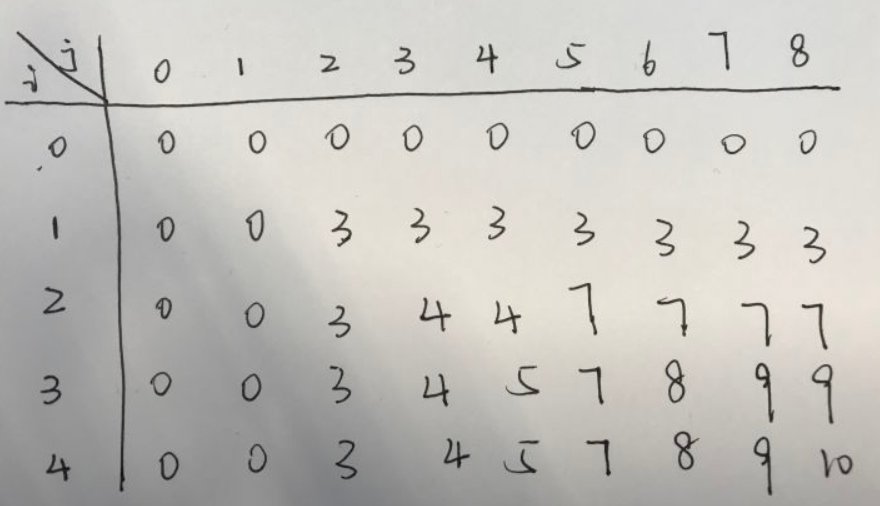 i j 0 1 2 3 4 5 6 7 8
0 0 0 0 0 0 0 0 0 0
1 0 0 3 3 3 3 3 3 3
2 0 0 3 4 4 7 7 7 7
3 0 0 3 4 5 7 8 9 9
4 0 0 3 4 5 7 8 9 10